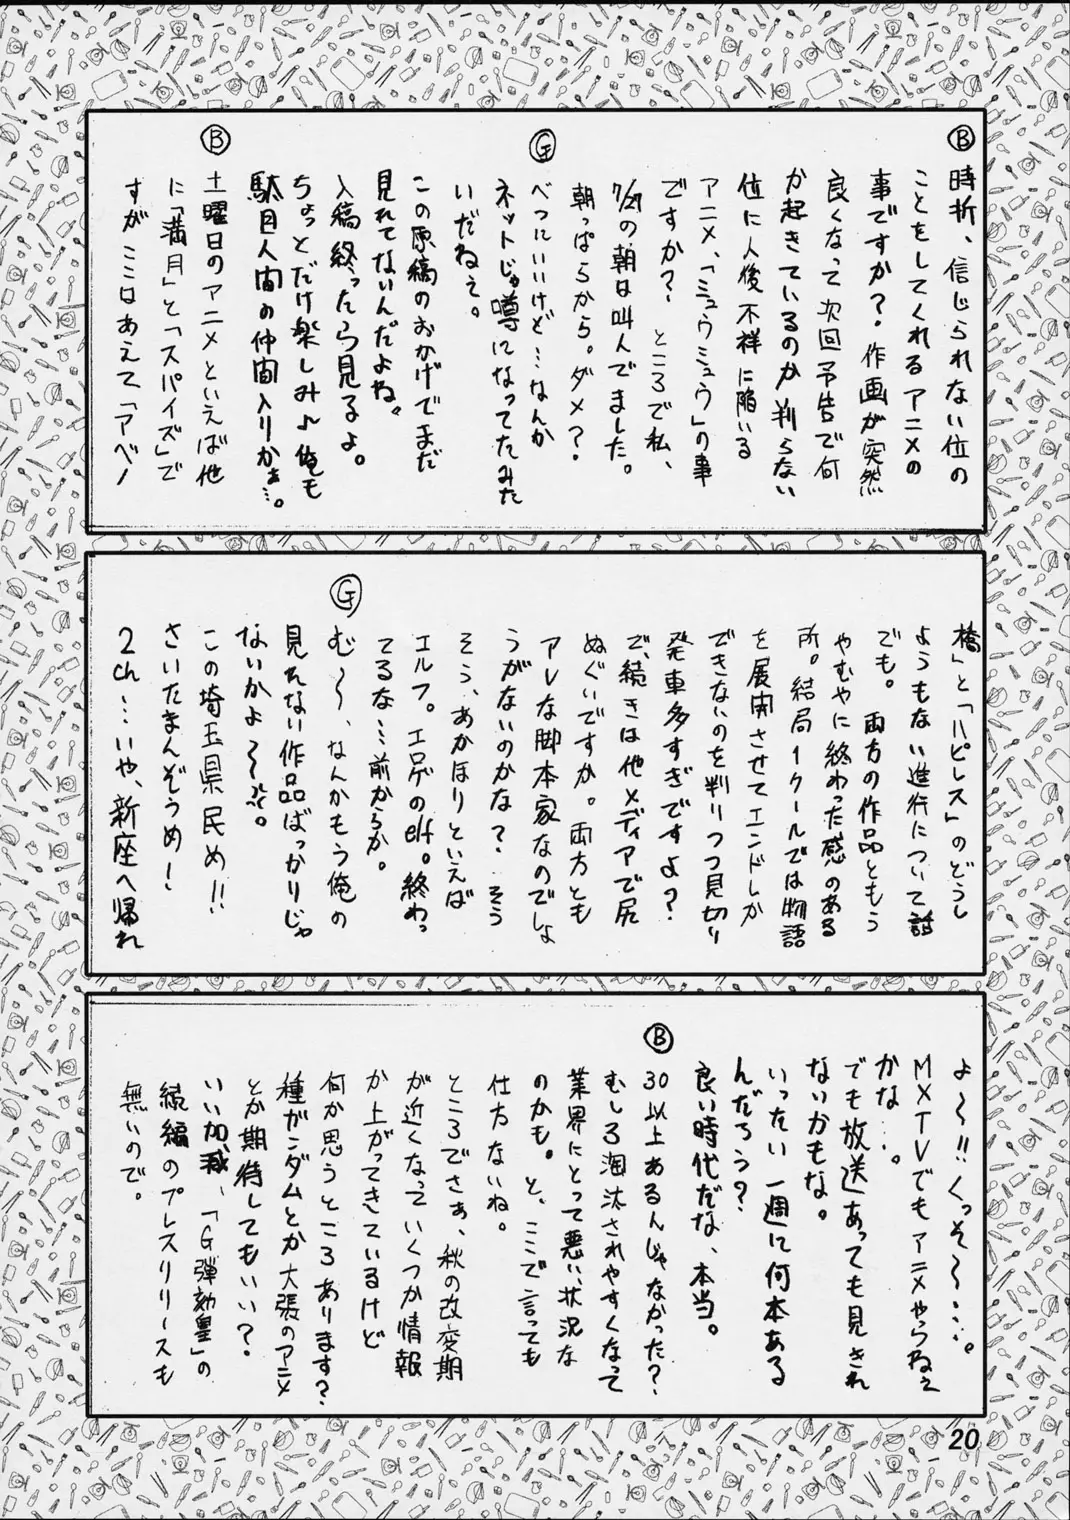 Ⓑ 時折、信じられない位の
ことをしてくれるアニメの
事ですか?作画が突然
良くなって次回予告で何
か起きているのか判らない
位に人後不祥に陥いる
アニメ、「ミュウミュウ」の事
ですか? ところで私、
7/29の朝は叫んでました。
朝っぱらから。ダメ?
Ⓖ べつにいいけど…なんか
ネットじゃ噂になってたみた
いだねぇ。
この原稿のおかげでまだ
見れてないんだよね。
入稿終ったら見るよ。
ちょっとだけ楽しみ♪俺も
駄目人間の仲間入りかぁ…。
Ⓑ 土曜日のアニメといえば他
に「満月」と「スパイズ」で
すがここはあえて「アベノ
橋」と「ハピレス」のどうし
ようもない進行について話
でも。 両方の作品ともう
やむやに終わった感のある
所。結局1クールでは物語
を展開させてエンドしか
できないのを判りつつ見切り
発車多すぎですよ?
で、続きは他メディアで尻
ぬぐいですか。両方とも
アレな脚本家なのでしょ
うがないのかな? そう
そう、あかほりといえば
エルフ。エロゲのelf。終わっ
てるな…前からか。
Ⓖ む〜、なんかもう俺の
見れない作品ばっかりじゃ
ないかよ〜。
この埼玉県民め!!
さいたまんぞうめ!
2ch…いや、新座へ帰れ
よ〜!!くっそ〜…。
MXTVでもアニメやらねぇ
かな…。
でも放送あっても見きれ
ないかもな。
いったい一週に何本ある
んだろう?
良い時代だな、本当。
Ⓑ 30以上あるんじゃなかった?
むしろ淘汰されやすくなって
業界にとって悪い状況な
のかも。と、ここで言っても
仕方ないね。
ところでさぁ、秋の改変期
が近くなっていくつか情報
か上がってきているけど
何か思うところあります?
種ガンダムとか大張のアニメ
とか期待してもいい?
いい加減、「G弾劾凰」の
続編のプレスリリースも
無いので。
20